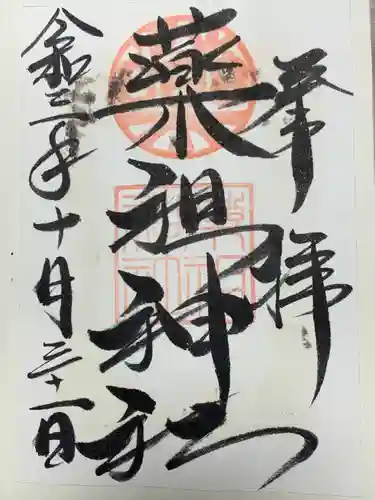 奉拝
薬祖神社
令和三年十月三十一日